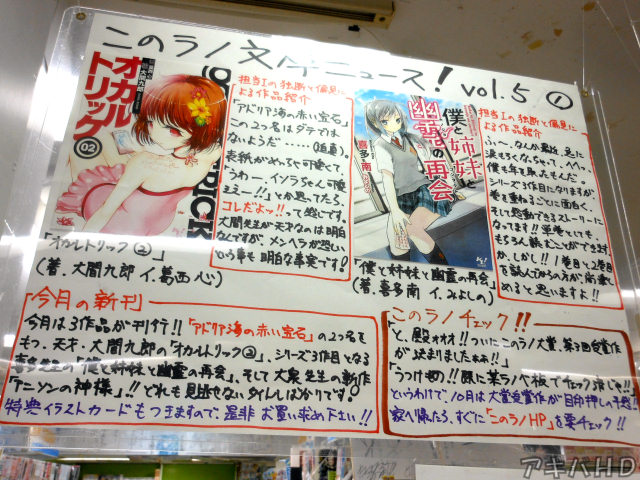 このラノ文庫ニュース! vol.5 ①
オカルトリック 02
担当Iの独断と偏見に
よる作品紹介
「アドリア海の赤い宝石」
この2つ名はダテでは
ないようだ……(迫真)。
表紙がめっちゃ可愛くて
「うわー、イソラちゃん可愛
ええー!!」とか思ってたら
コレだよッ!!って感じです。
大間先生が天才なのは明白
なんですが、メンヘラが恐しい
という事も明白な事実です!
「オカルトリック②」
(著.大間九郎 イ.葛西 心)
僕と姉妹と幽霊の再会
喜多南
担当Iの独断と偏見に
よる作品紹介
ふー、なんか最近、涙に
涙もろくなっちゃって、へへっ。
僕も年を取ったもんだ。
シリーズ3作目になりますが
巻を重ねるごとに面白く、
そして感動できるストーリーに
なってます!!単巻としても、
もちろん読むことができます
が、しかし!!1巻目と2巻目
を読んでからの方が、尚楽し
めると思いますよ!!
「僕と姉妹と幽霊の再会」
(著.喜多南 イ.みよしの)
「今月の新刊」
今月は3作品が刊行!!「アドリア海の赤い宝石」の2つ名を
もつ、天才・大間九郎の「オカルトリック②」、シリーズ3作目となる
喜多先生の「僕と姉妹と幽霊の再会」、そして大泉先生の新作
「アニソンの神様」!!どれも見逃せないタイトルばかりです!
特典イラストカードもつきますので、是非お買い求め下さい!!
このラノチェック!!
「と、殿ォオオ!!ついにこのラノ大賞、第3回受賞作
が決まりましたぁぁ!!」
「うつけめ!!既に某ラノベ板でチェック済じゃ!!」
というわけで、10月は大賞受賞作が目白押しの予感!
家へ帰ったら、すぐに「このラノHP」を要チェック!!
アキバHD